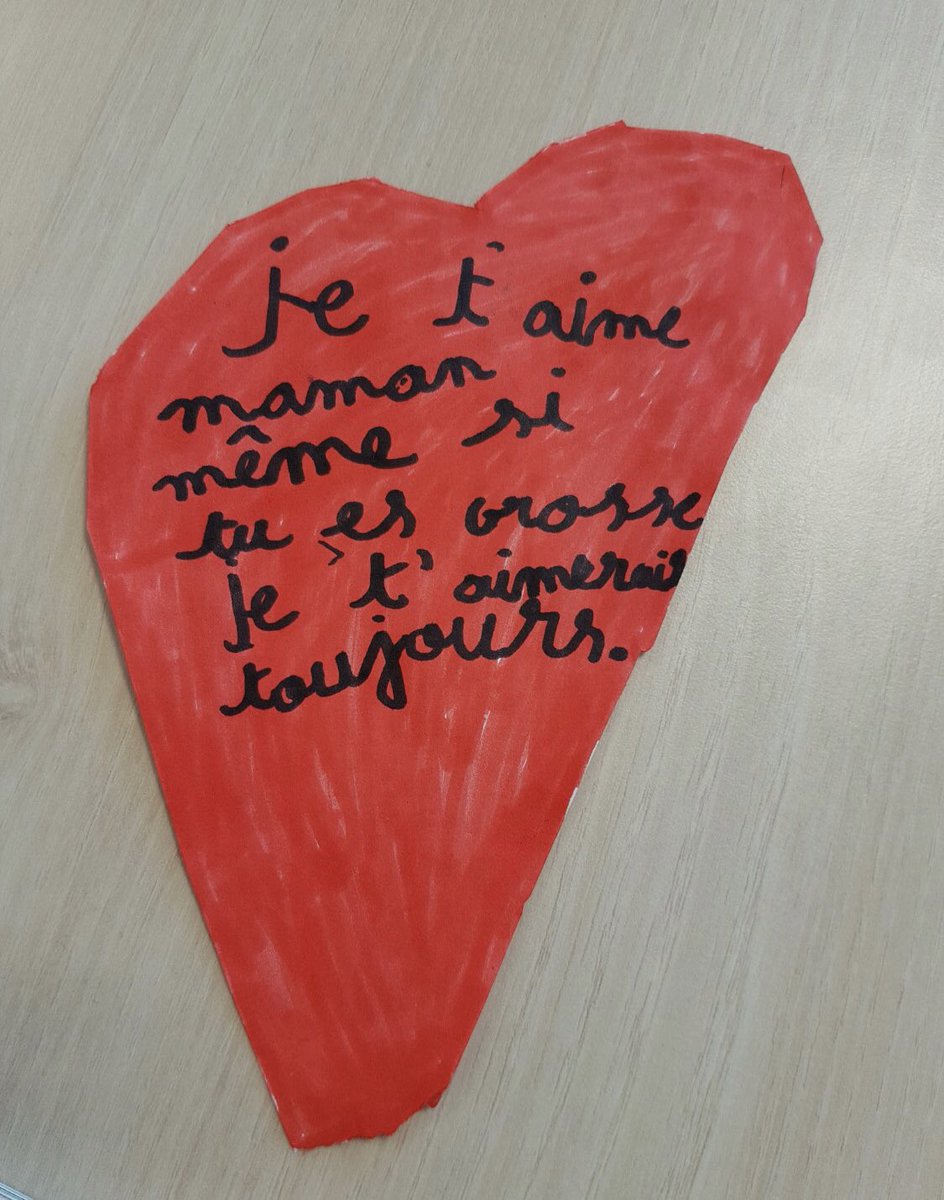 je t'aime
maman
même si
tu es grosse
je t'aimerait
toujours.